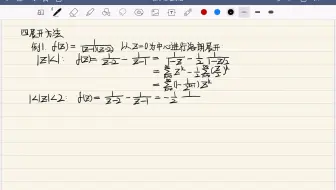 四展开方法
例1 f(z)=1/((z-1)(z-2)) 以z=0为中心进行洛朗展开
|z|<1: f(z)=1/(z-2) - 1/(z-1) = 1/(1-z) - 1/2 · 1/(1-z/2)
= Σ z^k - 1/2 Σ (z/2)^k
= Σ (1 - 1/2^(k+1)) z^k
1<|z|<2: f(z)=1/(z-2) - 1/(z-1) = -1/2 · 1/